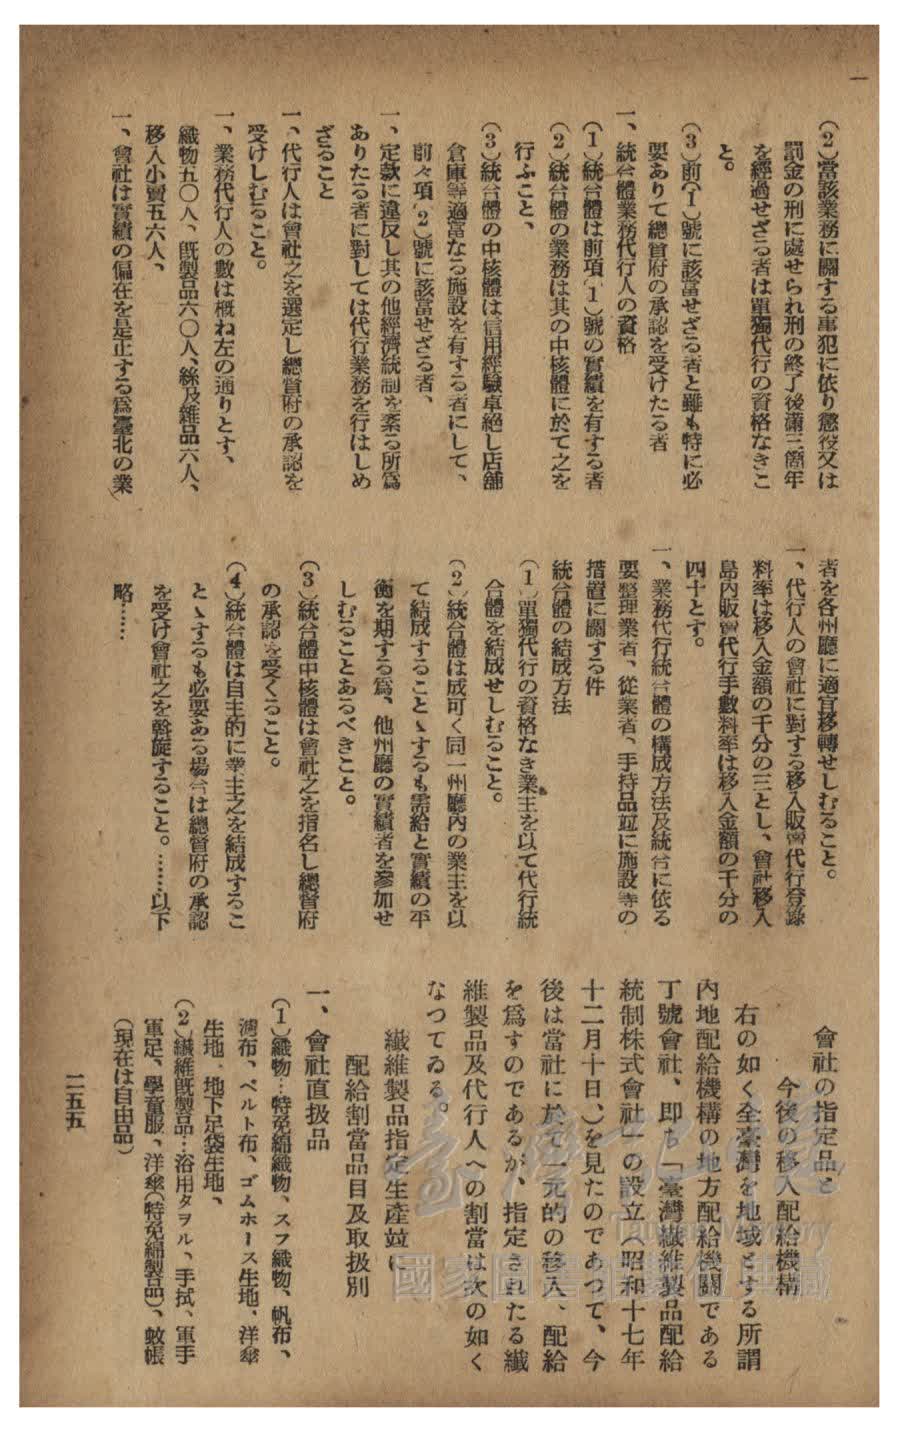 (2)當該業務に關する事犯に依り懲役又は
罰金の刑に處せられ刑の終了後滿三箇年
を經過せざる者は單獨代行の資格なきこ
と。
(3)前(1)號に該當せざる者と雖も特に必
要ありて總督府の承認を受けたる者
一、統合體業務代行人の資格
(1)統合體は前項(1)號の實績を有する者
(2)統合體の業務は其の中核體に於て之を
行ふこと、
(3)統合體の中核體は信用經驗卓絕し店舖
倉庫等適當なる施設を有する者にして、
前々項(2)號に該當せざる者、
一、定款に違反し其の他經濟統制を紊る所爲
ありたる者に對しては代行業務を行はしめ
ざること
一、代行人は會社之を選定し總督府の承認を
受けしむること。
一、業務代行人の數は槪ね左の通りとす、
織物五〇人、既製品六〇人、絲及雜品六人、
移入小賣五六人、
一、會社は實績の偏在を是正する爲臺北の業
者を各州廳に適宜移轉せしむること。
一、代行人の會社に對する移入販賣代行登錄
料率は移入金額の千分の三とし、會社移入
島內販賣代行手數料率は移入金額の千分の
四十とす。
一、業務代行統合體の構成方法及統合に依る
要整理業者、從業者、手持品竝に施設等の
措置に關する件
統合體の結成方法
(1)單獨代行の資格なき業主を以て代行統
合體を結成せしむること。
(2)統合體は成可く同一州廳內の業主を以
て結成することゝするも需給と實績の平
衡を期する爲、他州廳の實績者を參加せ
しむることあるべきこと。
(3)統合體中核體は會社之を指名し總督府
の承認を受くること。
(4)統合體は自主的に業主之を結成するこ
とゝするも必要ある場合は總督府の承認
を受け會社之を斡旋すること。……以下
略……
會社の指定品と
今後の移入配給機構
右の如く全臺灣を地域とする所謂
內地配給機構の地方配給機關である
丁號會社、卽ち「臺灣纖維製品配給
統制株式會社」の設立(昭和十七年
十二月十日、)を見たのであつて、今
後は當社に於て一元的の移入、配給
を爲すのであるが、指定されたる纖
維製品及代行人への割當は次の如く
なつてゐる。
纖維製品指定生產竝に
配給割當品目及取扱別
一、會社直扱品
(1)織物…特免綿織物、スフ織物、帆布、
濾布、ベルト布、ゴムホース生地、洋傘
生地 地下足袋生地、
(2)纖維既製品…浴用タヲル、手拭、軍手
軍足、學童服、洋傘(特免綿製品)、蚊帳
(現在は自由品)
二五五
臺灣記憶
Taiwan Memory
國家圖書館數位典藏